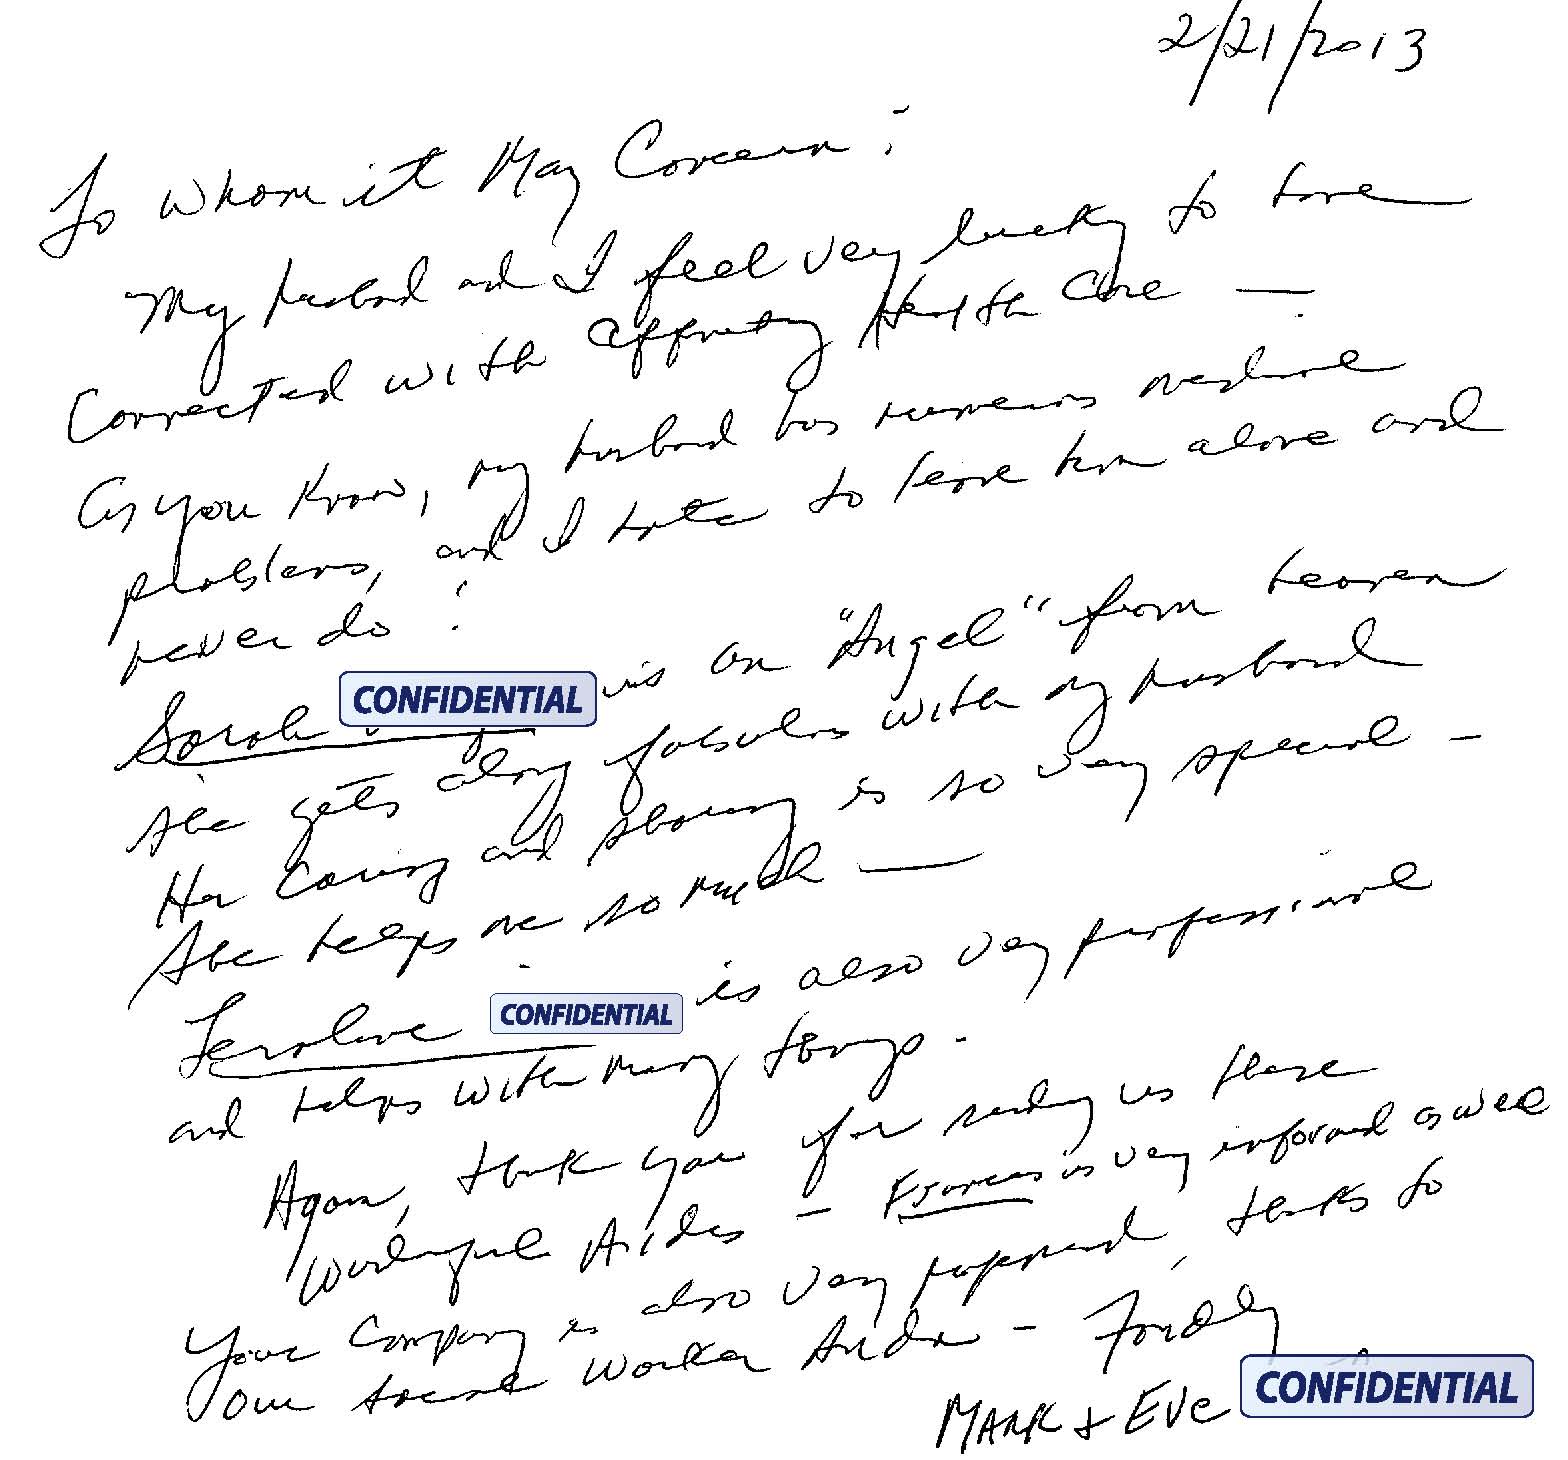 2/21/2013
To whom it May Concern:
My husband and I feel very lucky to have
Connected with Affinity Health Care —
As you know, my husband has numerous medical
problems, and I hate to leave him alone and
never do!
Sarah CONFIDENTIAL is an "Angel" from heaven
she gets along fabulous with my husband
Her caring and sharing is so very special -
She helps me so much —
CONFIDENTIAL is also very professional
and helps with many things.
Again, thank you for sending us these
Wonderful Aides - Frances is very informed as well
Your Company is also very prepared, thanks to
our social worker - Fondly
MARK + EVE CONFIDENTIAL